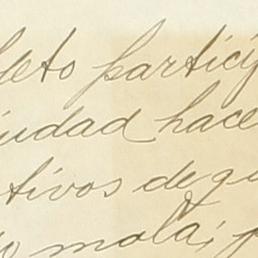 leto particip
iudad hace
tivos de qu
mola; p